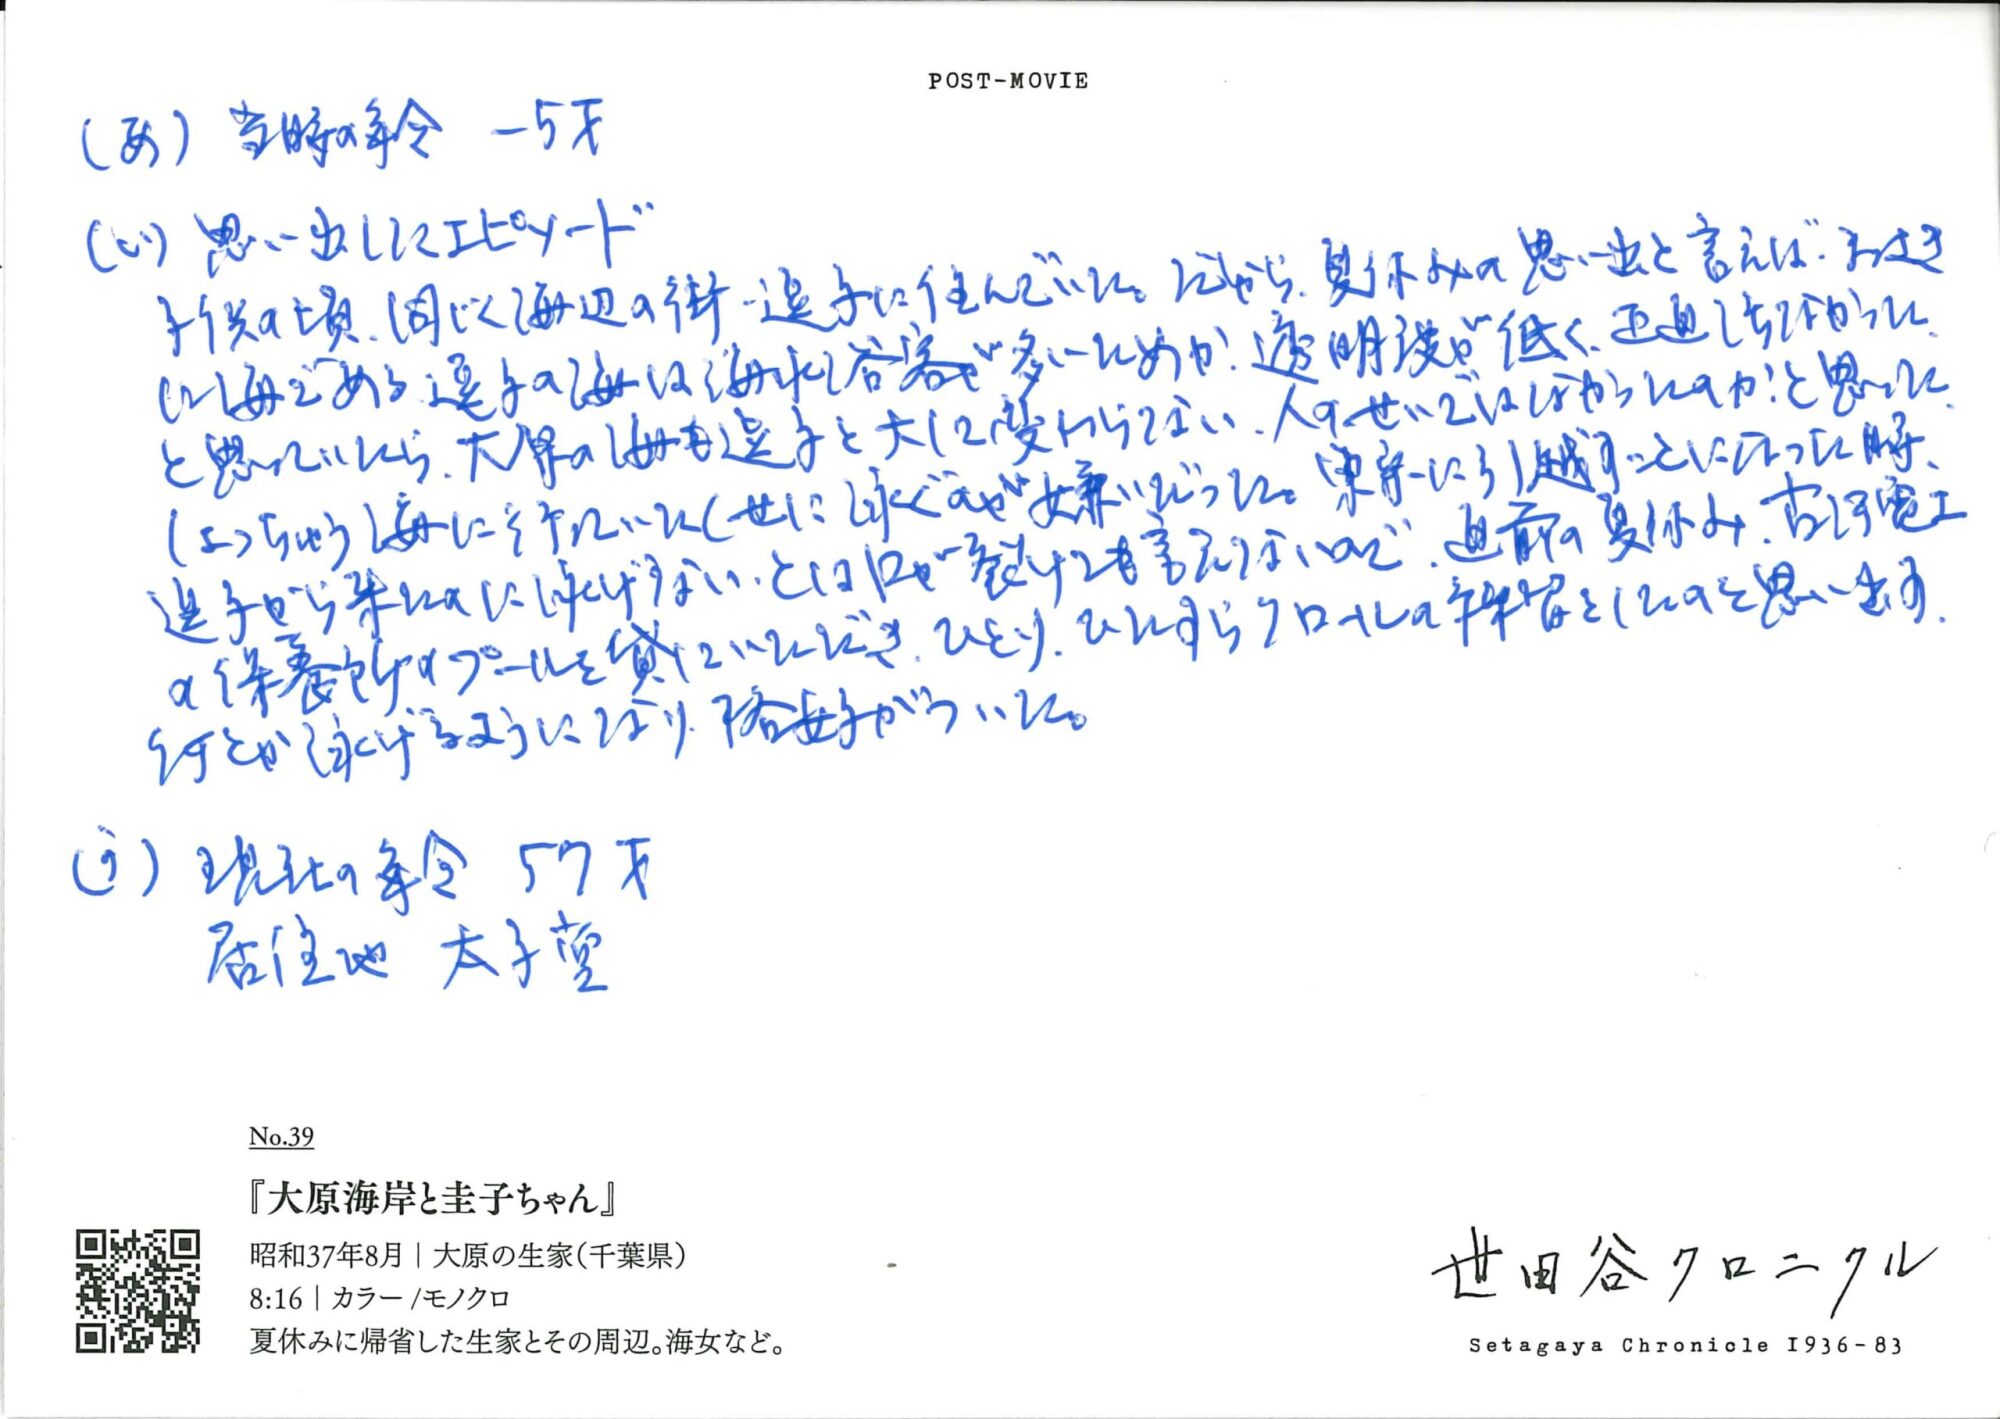 POST-MOVIE
(あ) 当時の年令 -5才
(い) 思い出したエピソード
子供の頃、同じく海辺の街・逗子に住んでいた。だから、夏休みの思い出と言えば、まっさき
に海である。逗子の海は海水浴客が多いためか、透明度が低く、正直しょぼかった
と思っていたら、大原の海も逗子と大して変わらない、人のせいではなかったのか!と思った。
しょっちゅう海に行っていたくせに泳ぐのが嫌いだった。東京に引越すことになった時、
逗子から来たのに泳げない、とは口が裂けても言えないので、直前の夏休み、古河電工
の保養所のプールを貸していただき、ひとり、ひたすらクロールの練習をしたのを思い出す。
何とか泳げるようになり、格好がついた。
(う) 現在の年令 57才
居住地 太子堂
No.39
『大原海岸と圭子ちゃん』
昭和37年8月|大原の生家(千葉県)
8:16|カラー/モノクロ
夏休みに帰省した生家とその周辺。海女など。
世田谷クロニクル
Setagaya Chronicle 1936-83